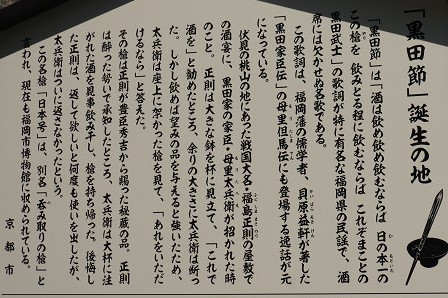 「黒田節」誕生の地
「黒田節」は「酒は飲め飲め飲むならば 日の本一の
この槍を 飲みとる程に飲むならば これぞまことの
黒田武士」の歌詞が特に有名な福岡県の民謡で、酒
席には欠かせぬ名歌である。
この歌詞は、福岡藩の儒学者、貝原益軒が著した
「黒田家臣伝」の母里但馬伝にも登場する逸話が元
になっている。
伏見の桃山の地にあった戦国大名・福島正則の屋敷で
の酒宴に、黒田家の家臣・母里太兵衛が招かれた時
のこと。正則は大きな鉢を杯に見立て、「これで
酒を」と勧めたところ、余りの大きさに太兵衛は断っ
た。しかし飲めば望みの品を与えると強いたため、
太兵衛は座上に架かった槍を見て、「あれをいただ
けるなら」と答えた。
その槍は正則が豊臣秀吉から賜った秘蔵の品。正則
は酔った勢いで承知したところ、太兵衛は大杯に注
がれた酒を見事飲み干し、槍を持ち帰った。後悔し
た正則は、返して欲しいと何度も使いを出したが、
太兵衛はついに返さなかったという。
この名槍「日本号」は、別名「呑み取りの槍」と
言われ、現在も福岡市博物館に収められている。
京都市